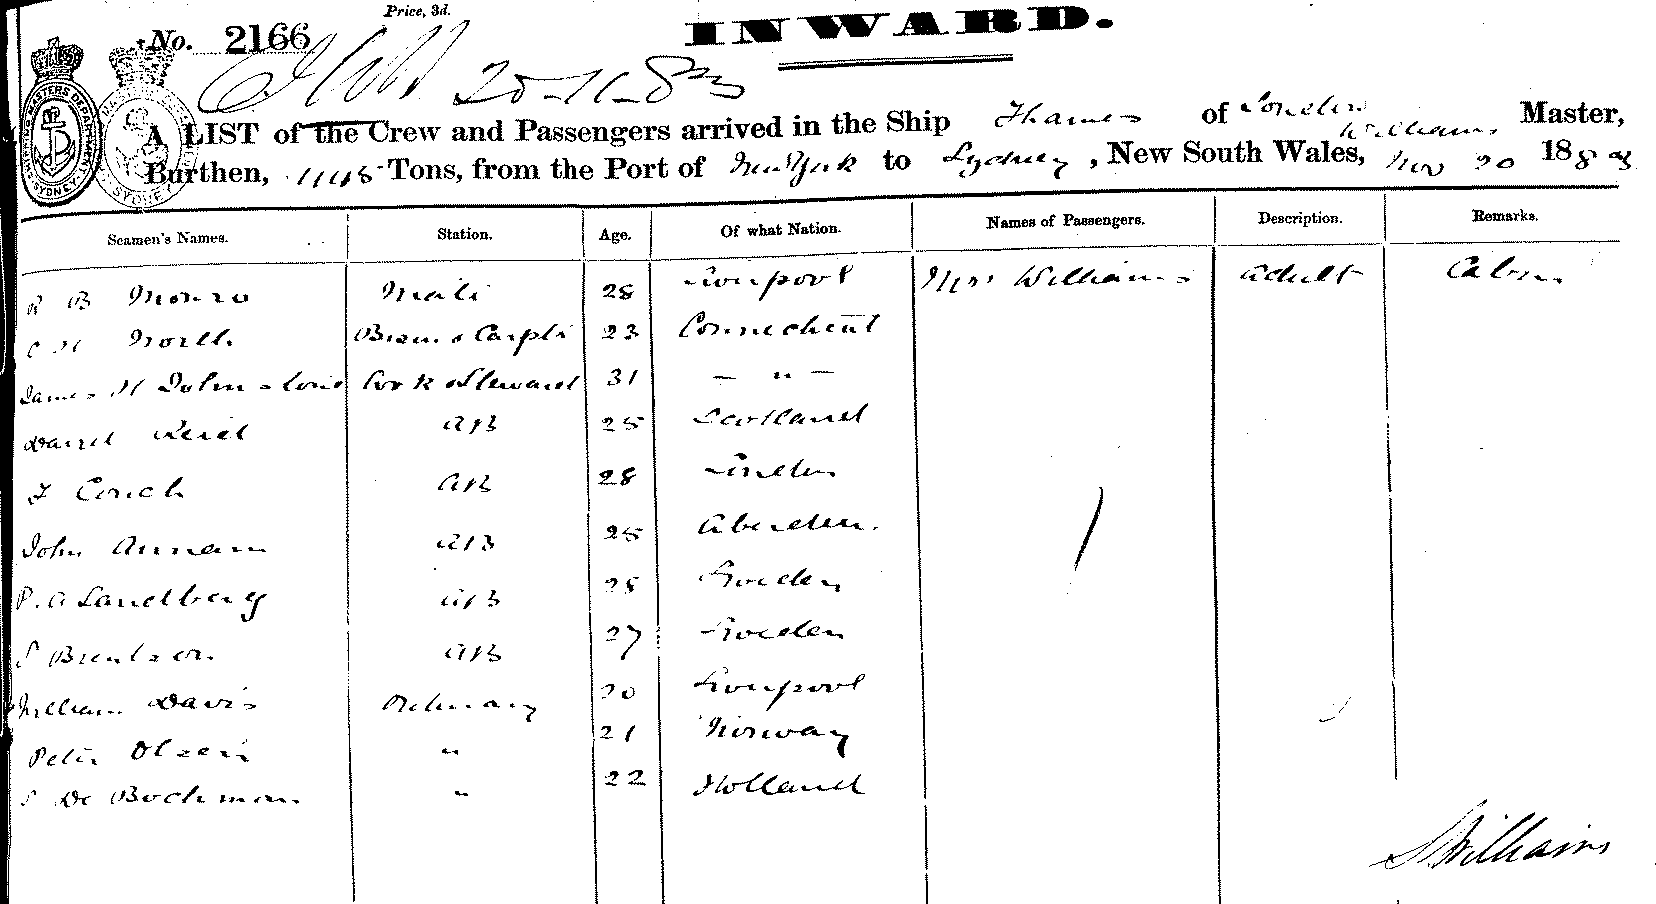 Price, 3d.
No. 2166
INWARD.
20-11-83
A LIST of the Crew and Passengers arrived in the Ship Thames of London Williams Master,
Burthen, Tons, from the Port of New York to Sydney, New South Wales, Nov 20 188
Seamen's Names. Station. Age. Of what Nation. Names of Passengers. Description. Remarks.
R B Monro Mate 28 Liverpool Mrs Williams adult Cabin
C H North 23 Connecticut
James H Johnstone Cook & Steward 31 — " —
David Reid AB 25 Scotland
Couch AB 28 London
John Annam AB 25 Aberdeen.
P. A Sandberg AB 28 Sweden
S AB 27 Sweden
William Davis Ordinary 20 Liverpool
Peter Olsen " 21 Norway
S De Bochman " 22 Holland
S Williams